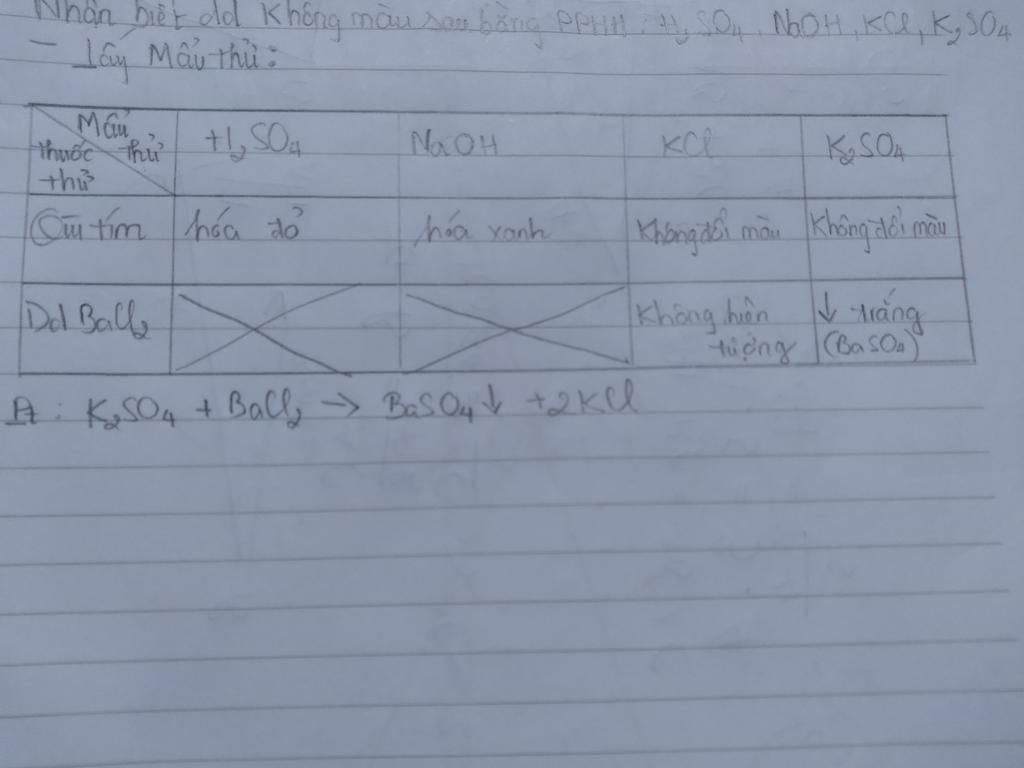 Nhận biết dd không màu sau bằng PPHH: H₂SO₄, NaOH, KCl, K₂SO₄
- Lấy Mẩu thử:
Mẩu thử
thuốc thử
H₂SO₄
NaOH
KCl
K₂SO₄
Qùi tím
hóa đỏ
hóa xanh
Không đổi màu
Không đổi màu
Dd BaCl₂
Không hiện tượng
↓ trắng (BaSO₄)
Pt: K₂SO₄ + BaCl₂ → BaSO₄↓ + 2KCl